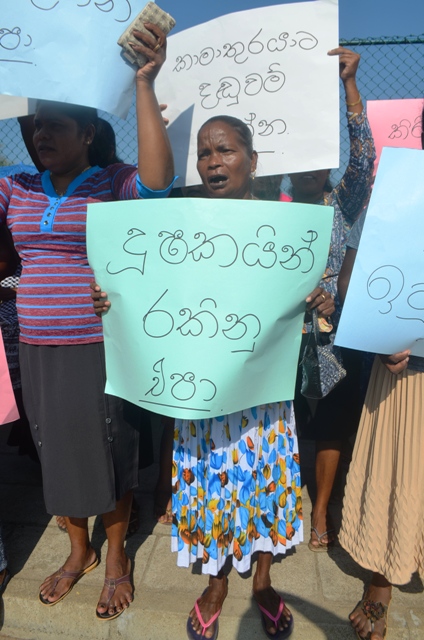 එපා
කාමාතුරයාට
දඬුවම්
දූෂකයින්
රකිනු
එපා